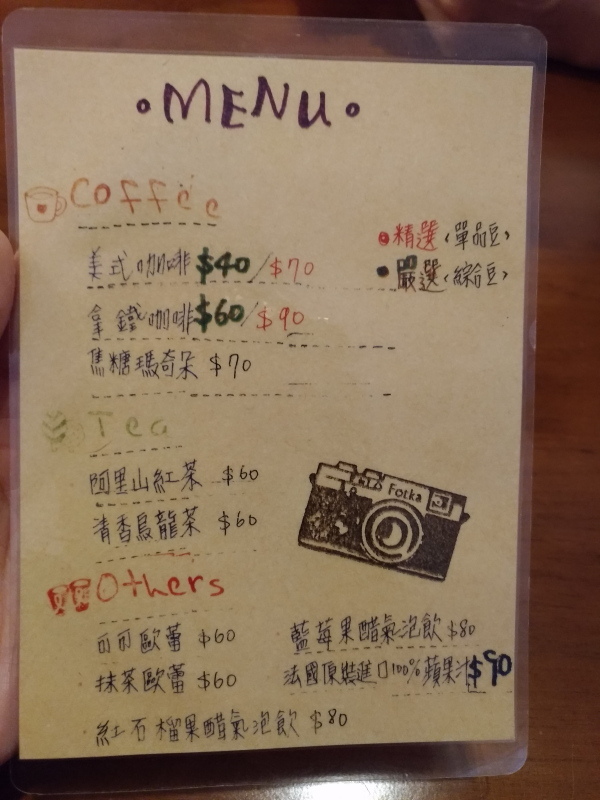 •MENU•
Coffee
•精選<單品豆>
•嚴選<綜合豆>
美式咖啡$40/$70
拿鐵咖啡$60/$90
焦糖瑪奇朵 $70
Tea
阿里山紅茶 $60
清香烏龍茶 $60
Fotka
Others
可可歐蕾 $60
抹茶歐蕾 $60
紅石榴果醋氣泡飲 $80
藍莓果醋氣泡飲 $80
法國原裝進口100%蘋果汁$90